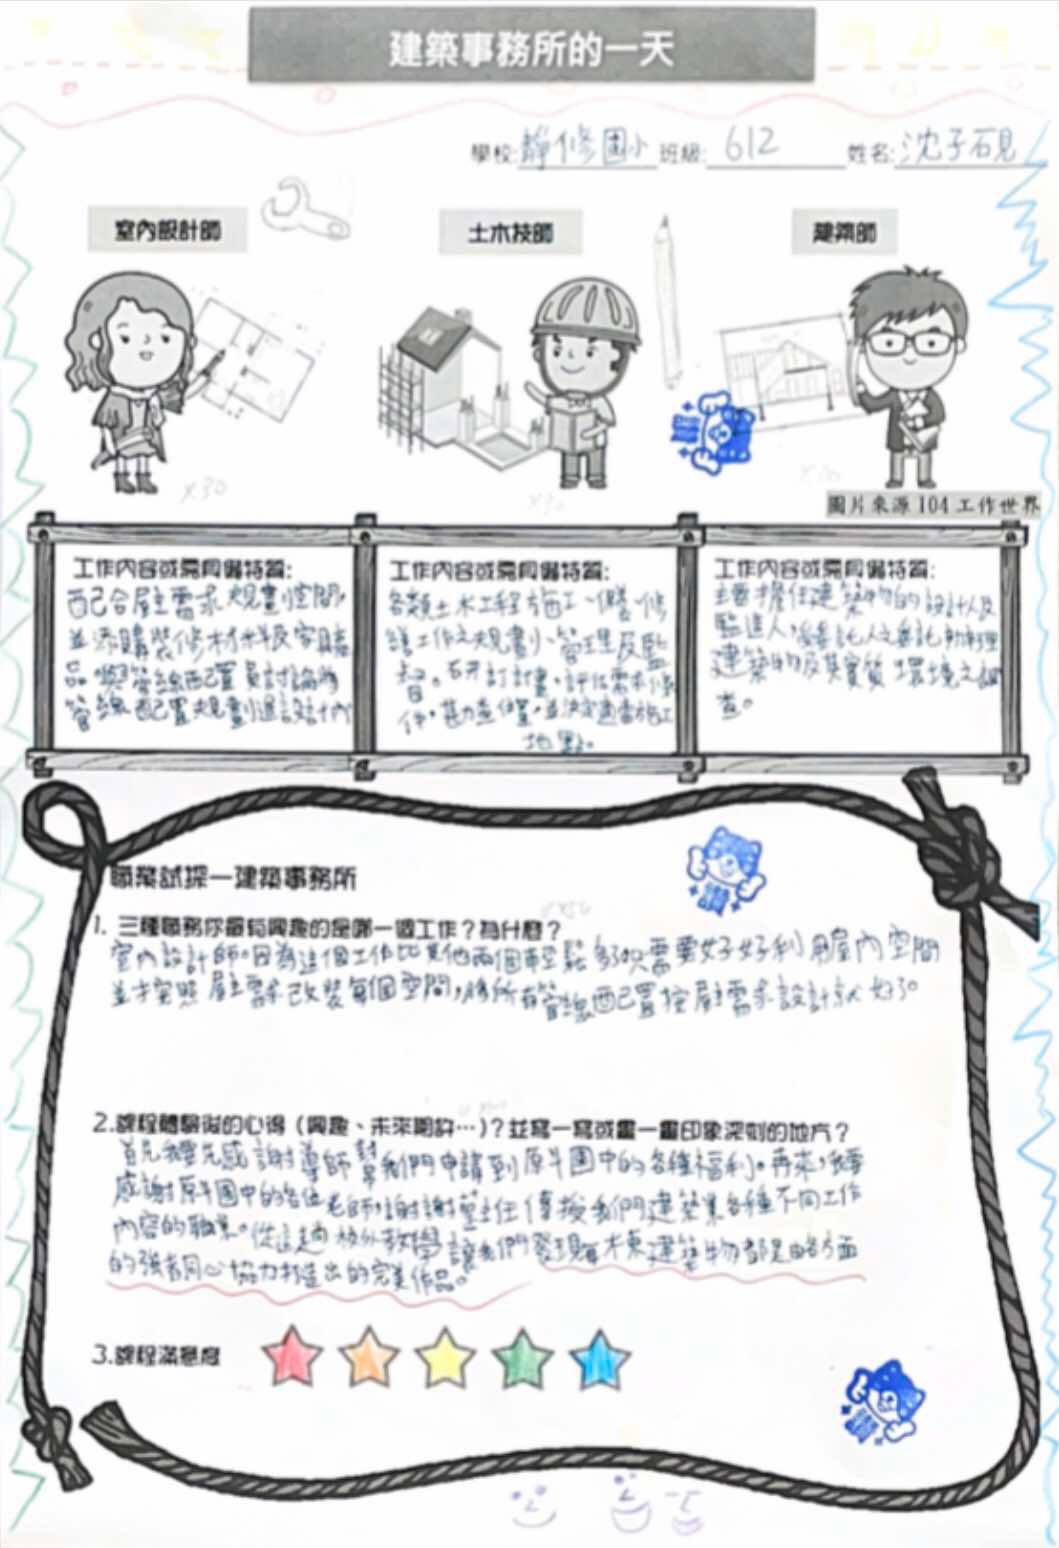 建築事務所的一天
學校:靜修國小 班級:612 姓名:沈子硯
室內設計師
土木技師
建築師
x30
x30
x30
圖片來源 104 工作世界
工作內容或需具備特質:
配合屋主需求規劃空間,
並添購裝修材料及家飾
品。與管線配置員討論將
管線配置規劃進設計內
工作內容或需具備特質:
各類土木工程施工、修
繕工作之規劃、管理及監
督。研訂計畫。評估需求條
件。勘查位置。並決定適當施工
地點。
工作內容或需具備特質:
主要擔任建築物的設計人及
監造人,受委託人之委託,辦理
建築物及其實質環境之調
查。
職業試探—建築事務所
1. 三種職務你最有興趣的是哪一個工作?為什麼?
室內設計師。因為這個工作比其他兩個輕鬆多,只需要好好利用屋內空間
並按照屋主需求改裝每個空間,將所有管線配置按屋主需求設計就好了。
2.課程體驗後的心得(興趣、未來期許⋯)?並寫一寫或畫一畫印象深刻的地方?
首先我要先感謝導師幫我們申請到原斗國中的各種福利。再來,我要
感謝原斗國中的各位老師,謝謝主任傳授我們建築業各種不同工作
內容的職業。從這趟校外教學讓我們發現每棟建築物都是由各方面
的強者同心協力打造出的完美作品。
3.課程滿意度
讚
讚
讚